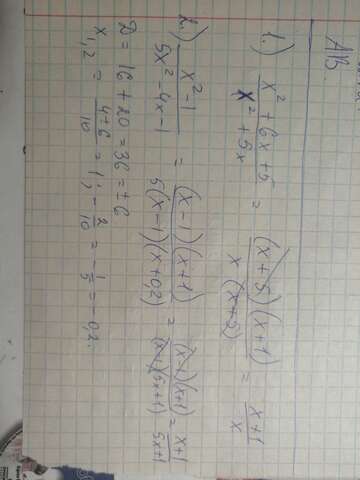 АВ.
1.) (x² + 6x + 5)/(x² + 5x) = ((x + 5)(x + 1))/(x (x + 5)) = (x + 1)/x
2.) (x² - 1)/(5x² - 4x - 1) = ((x - 1)(x + 1))/(5(x - 1)(x + 0,2)) = ((x - 1)(x + 1))/((x - 1)(5x + 1)) = (x + 1)/(5x + 1)
D = 16 + 20 = 36 = ± 6
x₁,₂ = (4 ± 6)/10 = 1; - 2/10 = - 1/5 = - 0,2.